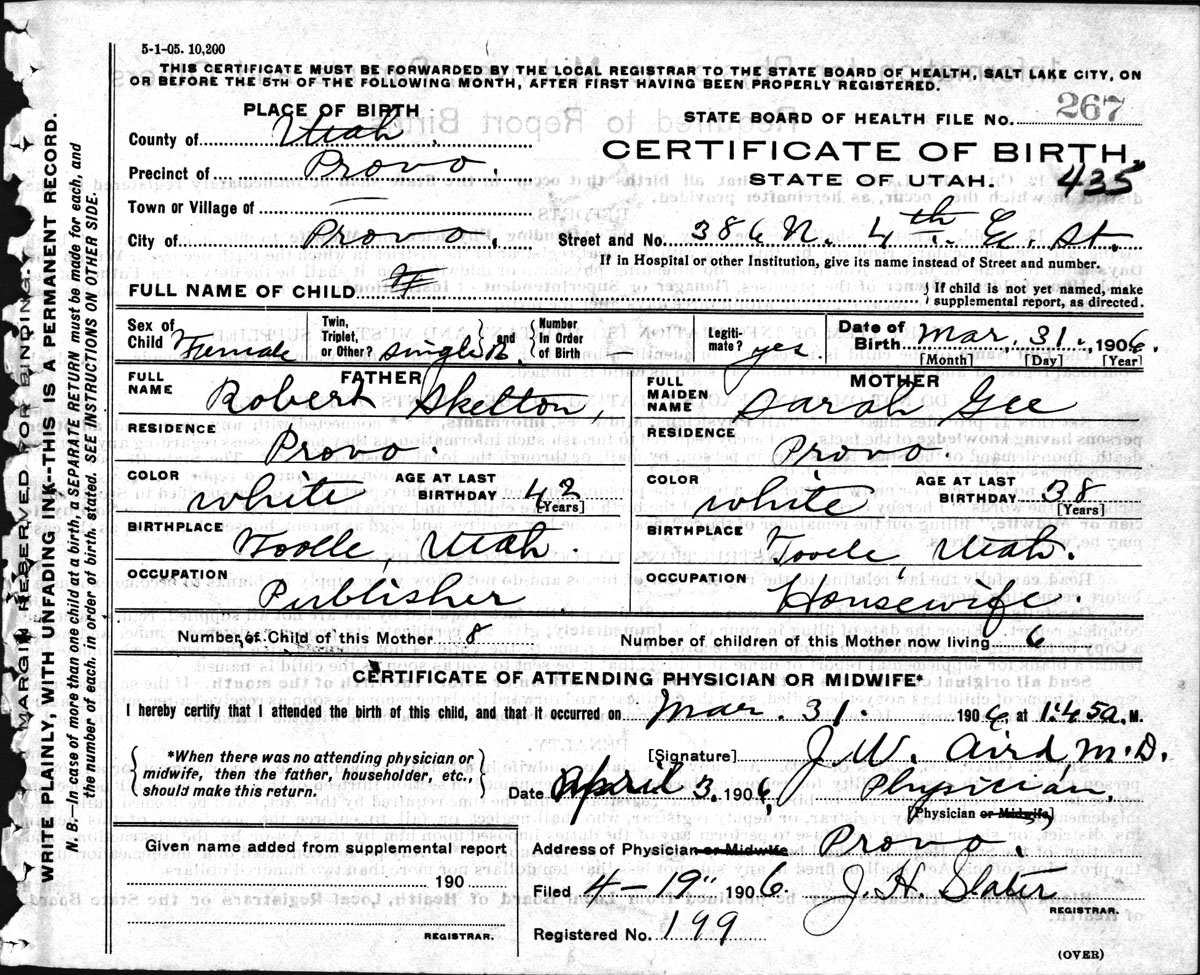 5-1-05. 10,200
THIS CERTIFICATE MUST BE FORWARDED BY THE LOCAL REGISTRAR TO THE STATE BOARD OF HEALTH, SALT LAKE CITY, ON
OR BEFORE THE 5TH OF THE FOLLOWING MONTH, AFTER FIRST HAVING BEEN PROPERLY REGISTERED.
PLACE OF BIRTH
STATE BOARD OF HEALTH FILE No. 267
County of Utah.
CERTIFICATE OF BIRTH.
Precinct of Provo.
STATE OF UTAH. 435
Town or Village of —
City of Provo, Street and No. 386 N. 4th. E. St.
If in Hospital or other Institution, give its name instead of Street and number.
FULL NAME OF CHILD { If child is not yet named, make
supplemental report, as directed.
Sex of Child Female Twin, Triplet, or Other? single and { Number In Order of Birth — Legiti-mate? yes. Date of Birth Mar. 31. 1906.
[Month] [Day] [Year]
FATHER
FULL NAME Robert Skelton,
RESIDENCE Provo.
COLOR white AGE AT LAST BIRTHDAY 42 [Years]
BIRTHPLACE Toolle, Utah.
OCCUPATION Publisher
MOTHER
FULL MAIDEN NAME Sarah Gee
RESIDENCE Provo.
COLOR white AGE AT LAST BIRTHDAY 38 [Years]
BIRTHPLACE Tooele, Utah.
OCCUPATION Housewife.
Number of Child of this Mother 8 Number of children of this Mother now living 6
CERTIFICATE OF ATTENDING PHYSICIAN OR MIDWIFE*
I hereby certify that I attended the birth of this child, and that it occurred on Mar. 31. 1906, at 1:45 a. M.
{ *When there was no attending physician or
midwife, then the father, householder, etc.,
should make this return. }
[Signature] J. W. Aird, M.D.
Date April 3. 1906, Physician.
[Physician or Midwife]
Address of Physician or Midwife Provo.
Given name added from supplemental report
190
REGISTRAR.
Filed 4-19" 1906. J. H. Slater
REGISTRAR.
Registered No. 199
(OVER)
MARGIN RESERVED FOR BINDING.
WRITE PLAINLY, WITH UNFADING INK--THIS IS A PERMANENT RECORD.
N. B.—In case of more than one child at a birth, a SEPARATE RETURN must be made for each, and
the number of each, in order of birth, stated. SEE INSTRUCTIONS ON OTHER SIDE.